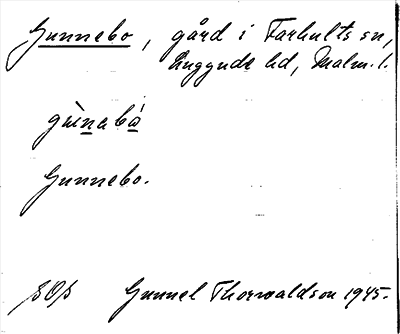 Gunnebo, gård i Farhults sn,
Luggude hd, Malm. l.
gùnebá
Gunnebo.
Gunnel Thorwaldson 1945.